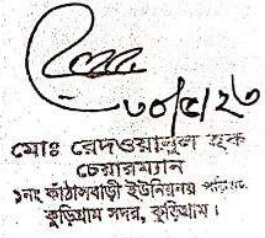 ৩০/৫/২৩
মোঃ রেদওয়ানুল হক
চেয়ারম্যান
১নং কাঁঠালবাড়ী ইউনিয়নয় পরিষদ
কুড়িগ্রাম সদর, কুড়িগ্রাম।